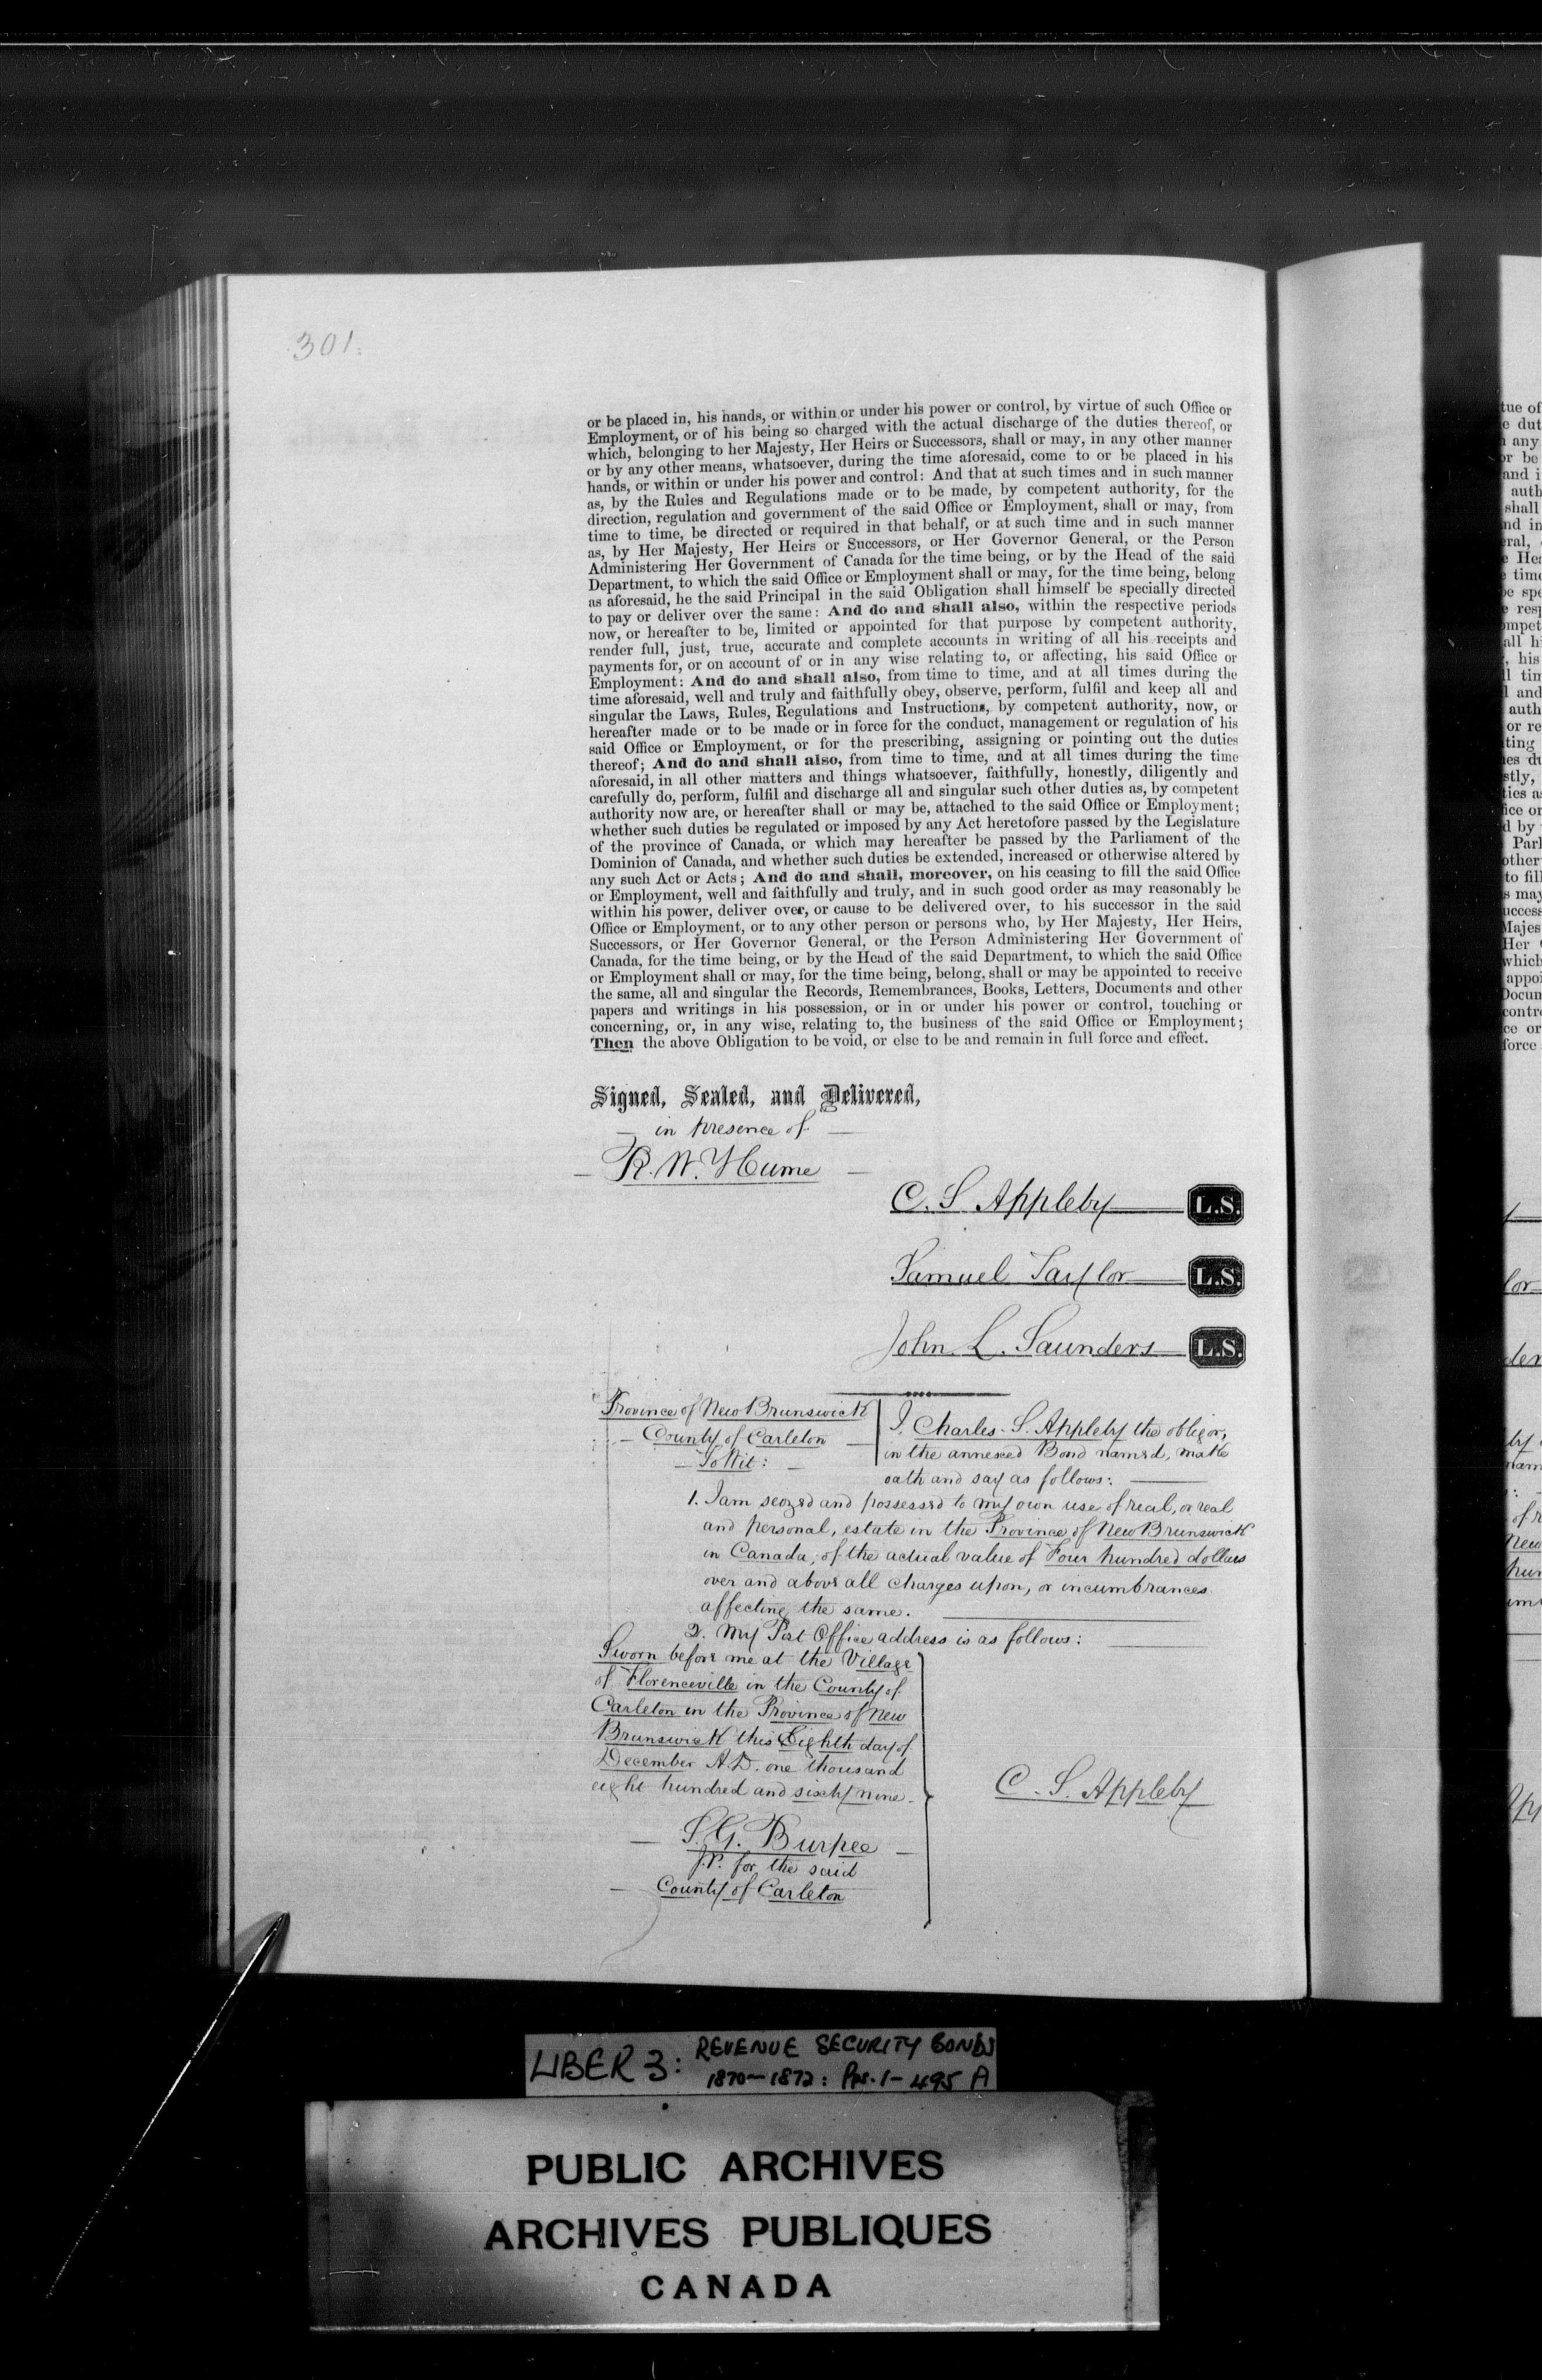 301.
or be placed in, his hands, or within or under his power or control, by virtue of such Office or
Employment, or of his being so charged with the actual discharge of the duties thereof, or
which, belonging to her Majesty, Her Heirs or Successors, shall or may, in any other manner
or by any other means, whatsoever, during the time aforesaid, come to or be placed in his
hands, or within or under his power and control: And that at such times and in such manner
as, by the Rules and Regulations made or to be made, by competent authority, for the
direction, regulation and government of the said Office or Employment, shall or may, from
time to time, be directed or required in that behalf, or at such time and in such manner
as, by Her Majesty, Her Heirs or Successors, or Her Governor General, or the Person
Administering Her Government of Canada for the time being, or by the Head of the said
Department, to which the said Office or Employment shall or may, for the time being, belong
as aforesaid, he the said Principal in the said Obligation shall himself be specially directed
to pay or deliver over the same: And do and shall also, within the respective periods
now, or hereafter to be, limited or appointed for that purpose by competent authority,
render full, just, true, accurate and complete accounts in writing of all his receipts and
payments for, or on account of or in any wise relating to, or affecting, his said Office or
Employment: And do and shall also, from time to time, and at all times during the
time aforesaid, well and truly and faithfully obey, observe, perform, fulfil and keep all and
singular the Laws, Rules, Regulations and Instructions, by competent authority, now, or
hereafter made or to be made or in force for the conduct, management or regulation of his
said Office or Employment, or for the prescribing, assigning or pointing out the duties
thereof; And do and shall also, from time to time, and at all times during the time
aforesaid, in all other matters and things whatsoever, faithfully, honestly, diligently and
carefully do, perform, fulfil and discharge all and singular such other duties as, by competent
authority now are, or hereafter shall or may be, attached to the said Office or Employment;
whether such duties be regulated or imposed by any Act heretofore passed by the Legislature
of the province of Canada, or which may hereafter be passed by the Parliament of the
Dominion of Canada, and whether such duties be extended, increased or otherwise altered by
any such Act or Acts; And do and shall, moreover, on his ceasing to fill the said Office
or Employment, well and faithfully and truly, and in such good order as may reasonably be
within his power, deliver over, or cause to be delivered over, to his successor in the said
Office or Employment, or to any other person or persons who, by Her Majesty, Her Heirs,
Successors, or Her Governor General, or the Person Administering Her Government of
Canada, for the time being, or by the Head of the said Department, to which the said Office
or Employment shall or may, for the time being, belong, shall or may be appointed to receive
the same, all and singular the Records, Remembrances, Books, Letters, Documents and other
papers and writings in his possession, or in or under his power or control, touching or
concerning, or, in any wise, relating to, the business of the said Office or Employment;
Then the above Obligation to be void, or else to be and remain in full force and effect.
Signed, Sealed, and Delivered,
— in presence of —
— R. W. Hume —
C. S. Appleby L.S.
Samuel Taylor L.S.
John L. Saunders L.S.
Province of New Brunswick
— County of Carleton —
— To Wit: —
I. Charles S. Appleby the obligor,
in the annexed Bond named, make
oath and say as follows:
1. I am seozed and possessed to my own use of real, or real
and personal, estate in the Province of New Brunswick
in Canada, of the actual value of Four hundred dollars
over and above all charges upon, or incumbrances
affecting the same.
2. My Post Office address is as follows:
Sworn before me at the Village
of Florenceville in the County of
Carleton in the Province of New
Brunswick this Eighth day of
December A.D. one thousand
eight hundred and sixty nine.
C. S. Appleby
— S. G. Burpee —
J.P. for the said
— County of Carleton
LIBER 3: REVENUE SECURITY BONDS
1870-1872: Pps. 1-495 A
PUBLIC ARCHIVES
ARCHIVES PUBLIQUES
CANADA